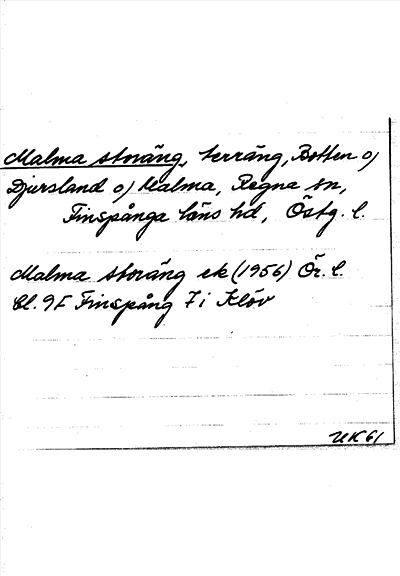 Malma storäng, terräng, Botten o/
Djursland o/ Malma, Regna sn,
Finspånga läns hd, Östg. l.
Malma storäng ek (1956) Ör. l.
bl. 9F Finspång 7i Klöv
UK 61